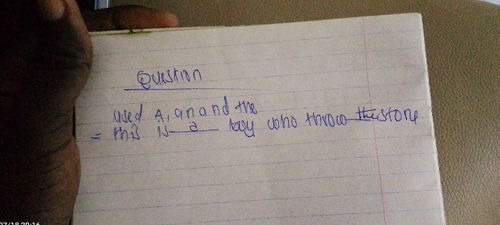 Question
used A, an and the
= this is a boy who throw the stone
07/18 20:16